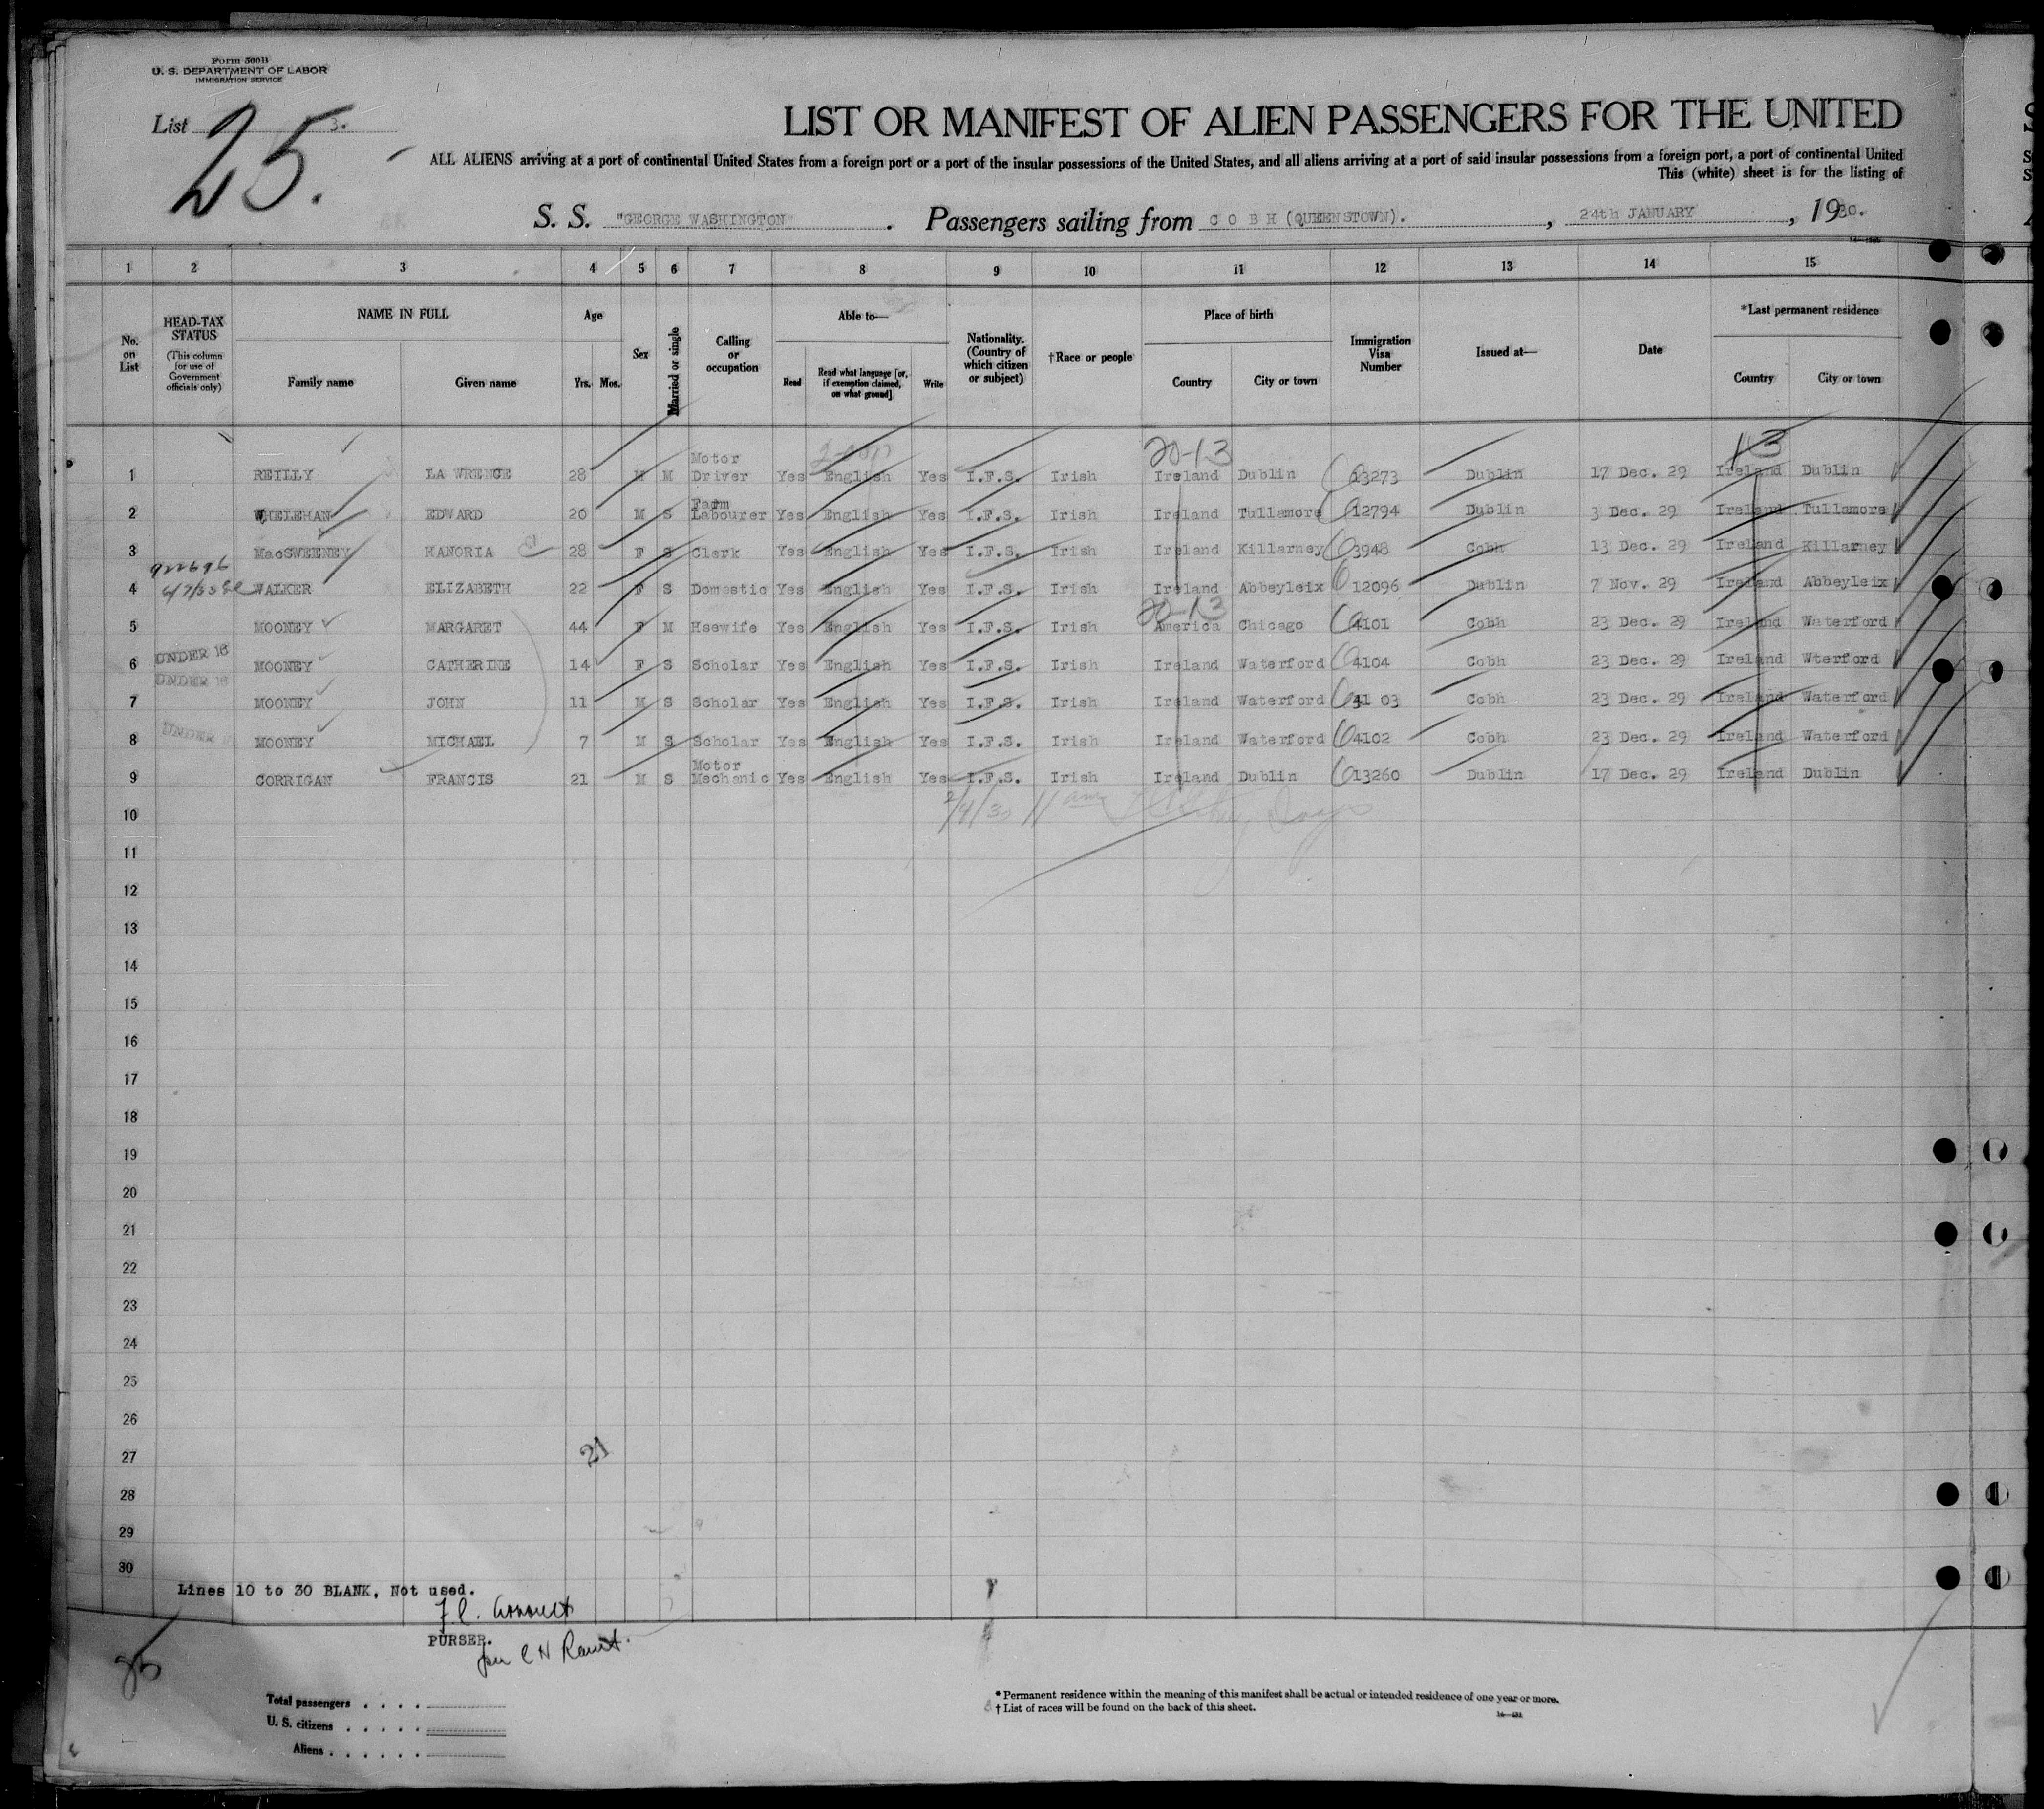 Form 500B
U. S. DEPARTMENT OF LABOR
IMMIGRATION SERVICE
List 3.
25.
LIST OR MANIFEST OF ALIEN PASSENGERS FOR THE UNITED
ALL ALIENS arriving at a port of continental United States from a foreign port or a port of the insular possessions of the United States, and all aliens arriving at a port of said insular possessions from a foreign port, a port of continental United
This (white) sheet is for the listing of
S. S. "GEORGE WASHINGTON" . Passengers sailing from C O B H (QUEENSTOWN). , 24th JANUARY , 1930.
1 2 3 4 5 6 7 8 9 10 11 12 13 14 15
No. on List
HEAD-TAX STATUS
(This column for use of Government officials only)
NAME IN FULL
Family name Given name
Age
Yrs. Mos.
Sex
Married or single
Calling or occupation
Able to—
Read
Read what language [or, if exemption claimed, on what ground]
Write
Nationality. (Country of which citizen or subject)
†Race or people
Place of birth
Country City or town
Immigration Visa Number
Issued at—
Date
*Last permanent residence
Country City or town
20-13
1 REILLY LA WRENCE 28 M M Motor Driver Yes English Yes I.F.S. Irish Ireland Dublin 13273 Dublin 17 Dec. 29 Ireland Dublin
2 WHELEHAN EDWARD 20 M S Farm Labourer Yes English Yes I.F.S. Irish Ireland Tullamore 12794 Dublin 3 Dec. 29 Ireland Tullamore
3 MacSWEENEY HANORIA 28 F S Clerk Yes English Yes I.F.S. Irish Ireland Killarney 3948 Cobh 13 Dec. 29 Ireland Killarney
922696
4 WALKER ELIZABETH 22 F S Domestic Yes English Yes I.F.S. Irish Ireland Abbeyleix 12096 Dublin 7 Nov. 29 Ireland Abbeyleix
20-13
5 MOONEY MARGARET 44 F M Hsewife Yes English Yes I.F.S. Irish America Chicago 4101 Cobh 23 Dec. 29 Ireland Waterford
6 UNDER 16 MOONEY CATHERINE 14 F S Scholar Yes English Yes I.F.S. Irish Ireland Waterford 4104 Cobh 23 Dec. 29 Ireland Wterford
UNDER 16
7 MOONEY JOHN 11 M S Scholar Yes English Yes I.F.S. Irish Ireland Waterford 41 03 Cobh 23 Dec. 29 Ireland Waterford
8 UNDER MOONEY MICHAEL 7 M S Scholar Yes English Yes I.F.S. Irish Ireland Waterford 4102 Cobh 23 Dec. 29 Ireland Waterford
9 CORRIGAN FRANCIS 21 M S Motor Mechanic Yes English Yes I.F.S. Irish Ireland Dublin 13260 Dublin 17 Dec. 29 Ireland Dublin
10 2/4/30 11 am
11
12
13
14
15
16
17
18
19
20
21
22
23
24
25
26
27 21
28
29
30
Lines 10 to 30 BLANK, Not used.
PURSER.
Total passengers . . . .
U. S. citizens . . . . .
Aliens . . . . . .
* Permanent residence within the meaning of this manifest shall be actual or intended residence of one year or more.
† List of races will be found on the back of this sheet.